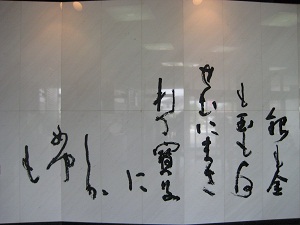 銀も金
も玉も何
せむにまさ
れる寶子
に
しか
めや
も